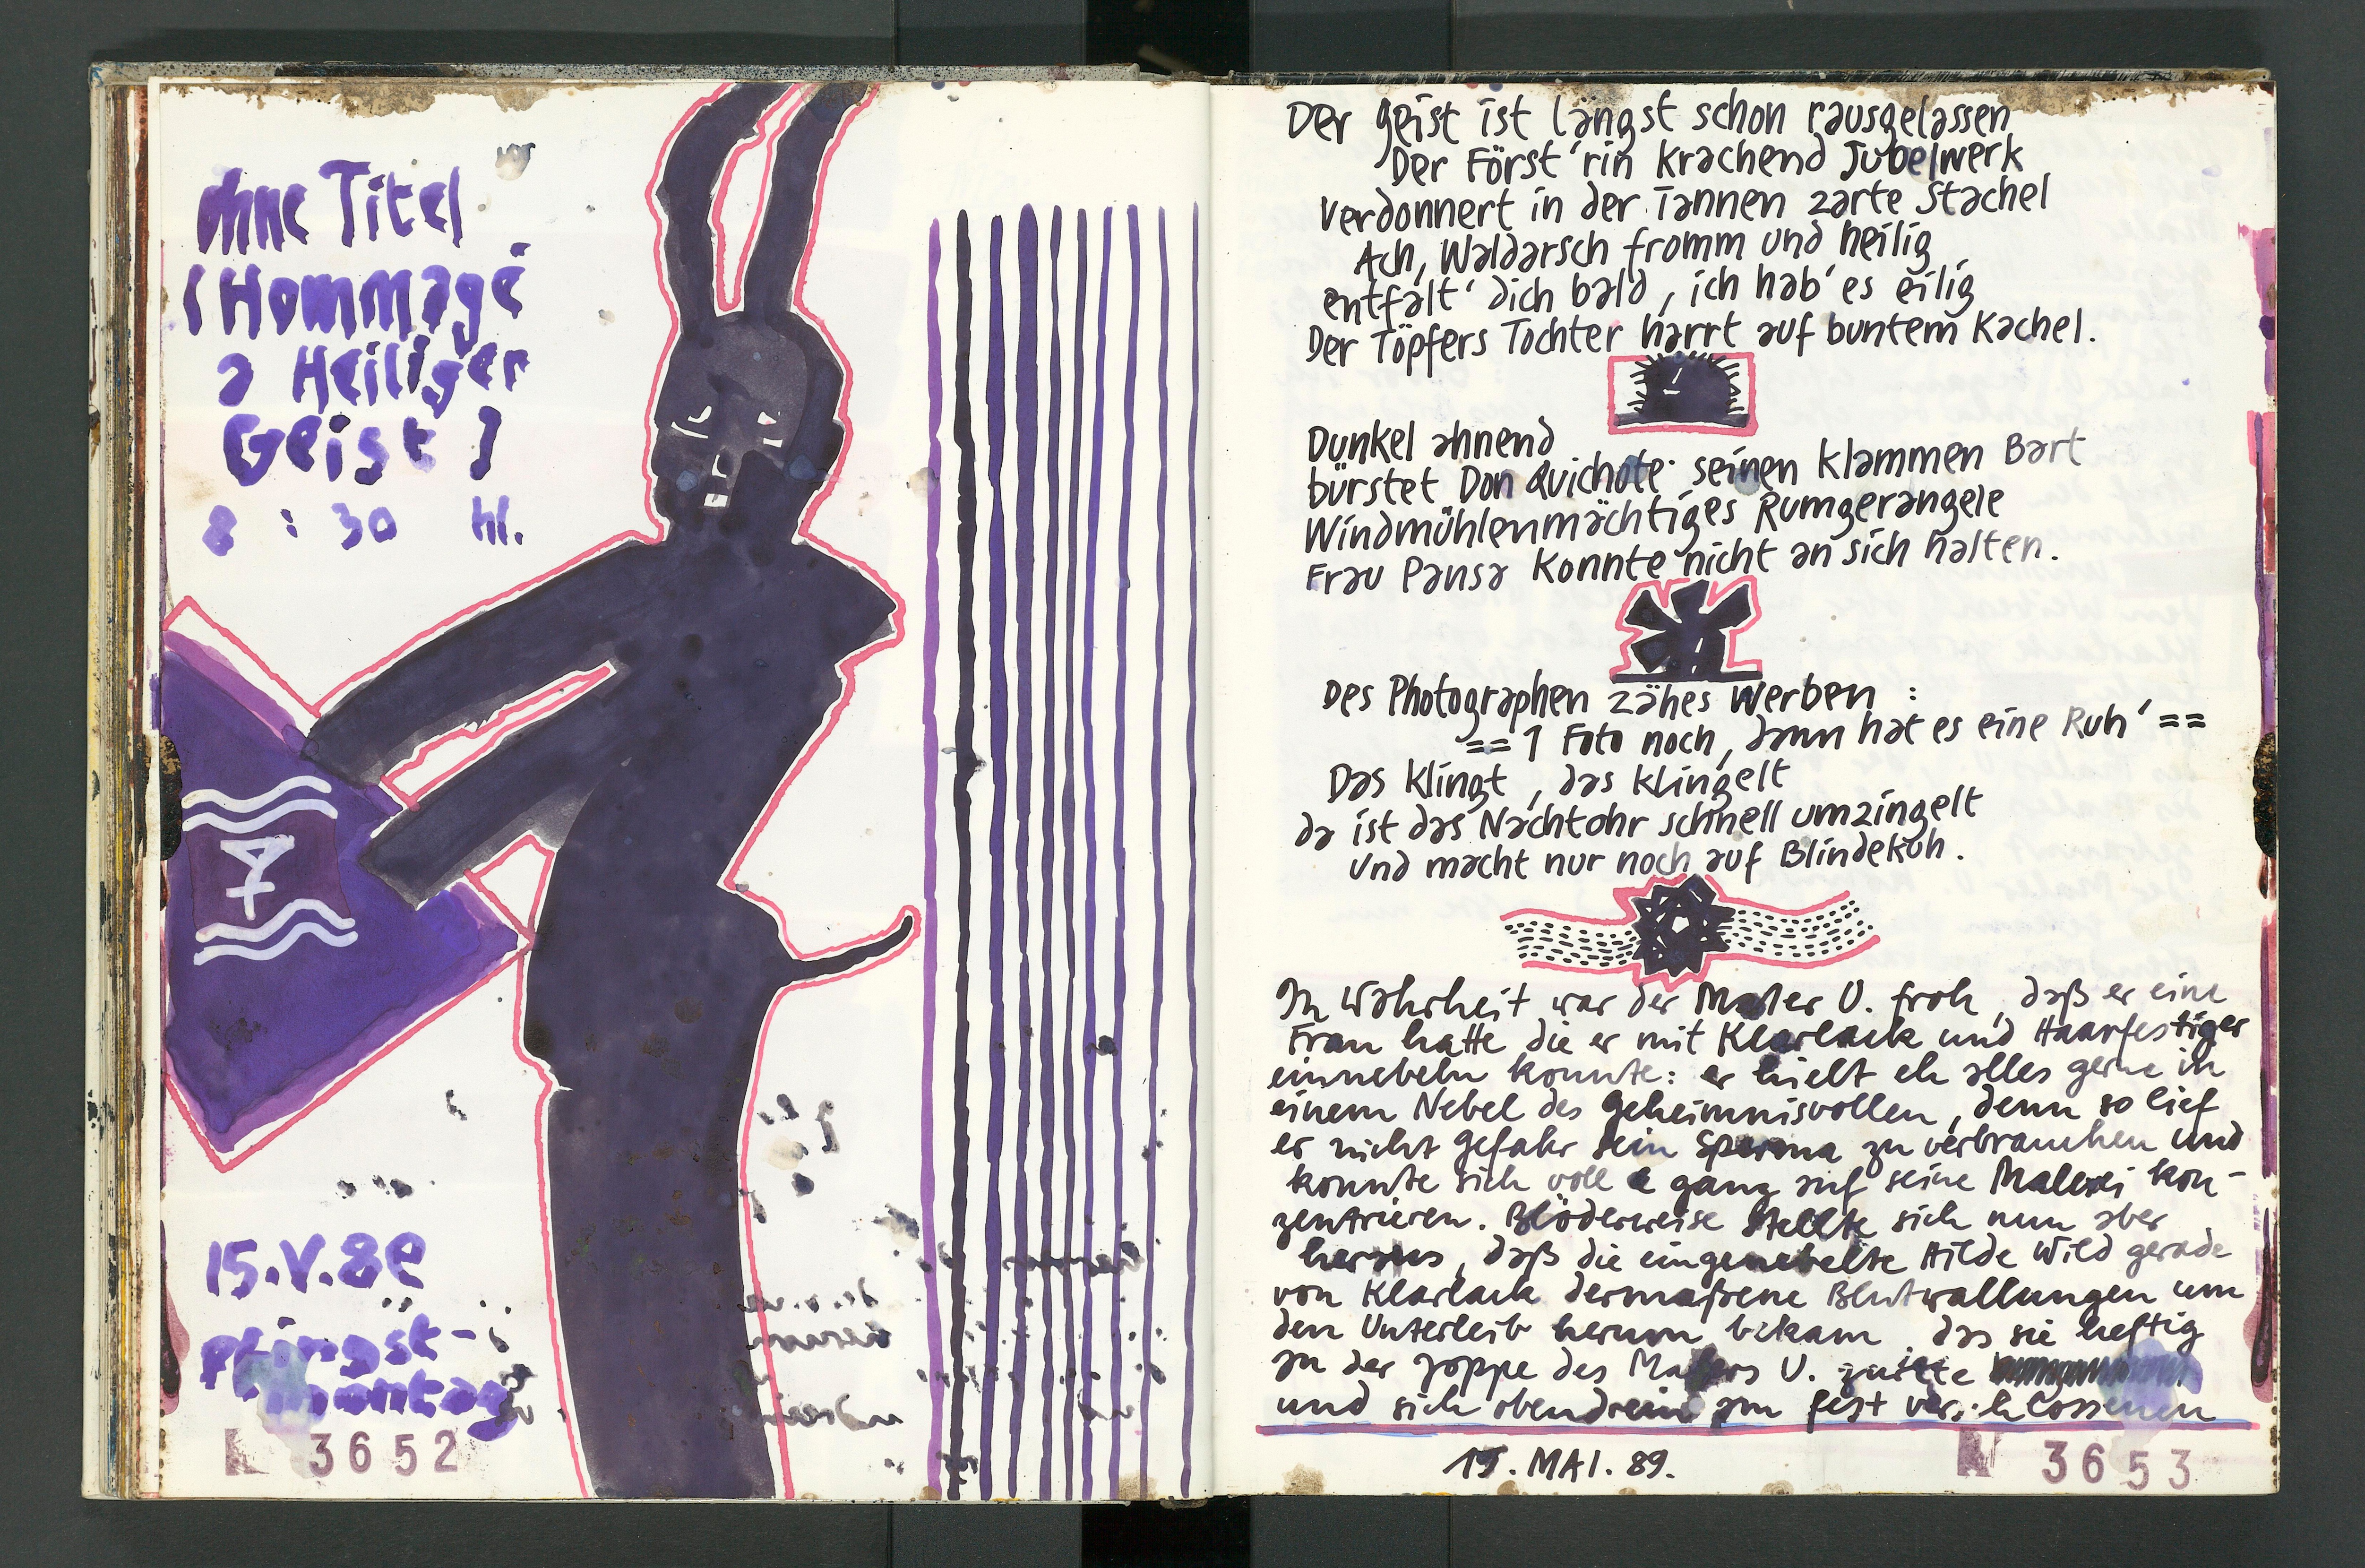 ohne Titel
(Hommage
a Heiliger
Geist)
8 : 30 hl.
15.V.89
Pfingst-
montag
3652
Der Geist ist längst schon rausgelassen
Der Först'rin krachend Jubelwerk
Verdonnert in der Tannen zarte Stachel
Ach, Waldarsch fromm und heilig
entfalt' dich bald, ich hab' es eilig
Der Töpfers Tochter harrt auf buntem Kachel.
Dunkel ahnend
bürstet Don Quichote seinen klammen Bart
Windmühlenmächtiges Rumgerangele
Frau Pansa konnte nicht an sich halten.
Des Photographen zähes Werben :
== 1 Foto noch, dann hat es eine Ruh' ==
Das klingt, das klingelt
da ist das Nachtohr schnell umzingelt
und macht nur noch auf Blindekuh.
In Wahrheit war der Maler U. froh, daß er eine
Frau hatte die er mit Klarlack und Haarfestiger
einnebeln konnte: er hielt eh alles gerne in
einem Nebel des Geheimnisvollen, denn so lief
er nicht Gefahr sein Sperma zu verbrauchen und
konnte sich voll & ganz auf seine Malerei kon-
zentrieren. Blöderweise stellte sich nun aber
heraus, daß die eingenebelte Hilde Wild gerade
von Klarlack dermaßene Blutwallungen um
den Unterleib herum bekam, das sie heftig
an der Joppe des Malers U.
und sich obendrein am fest verschlossenen
15. MAI. 89.
3653